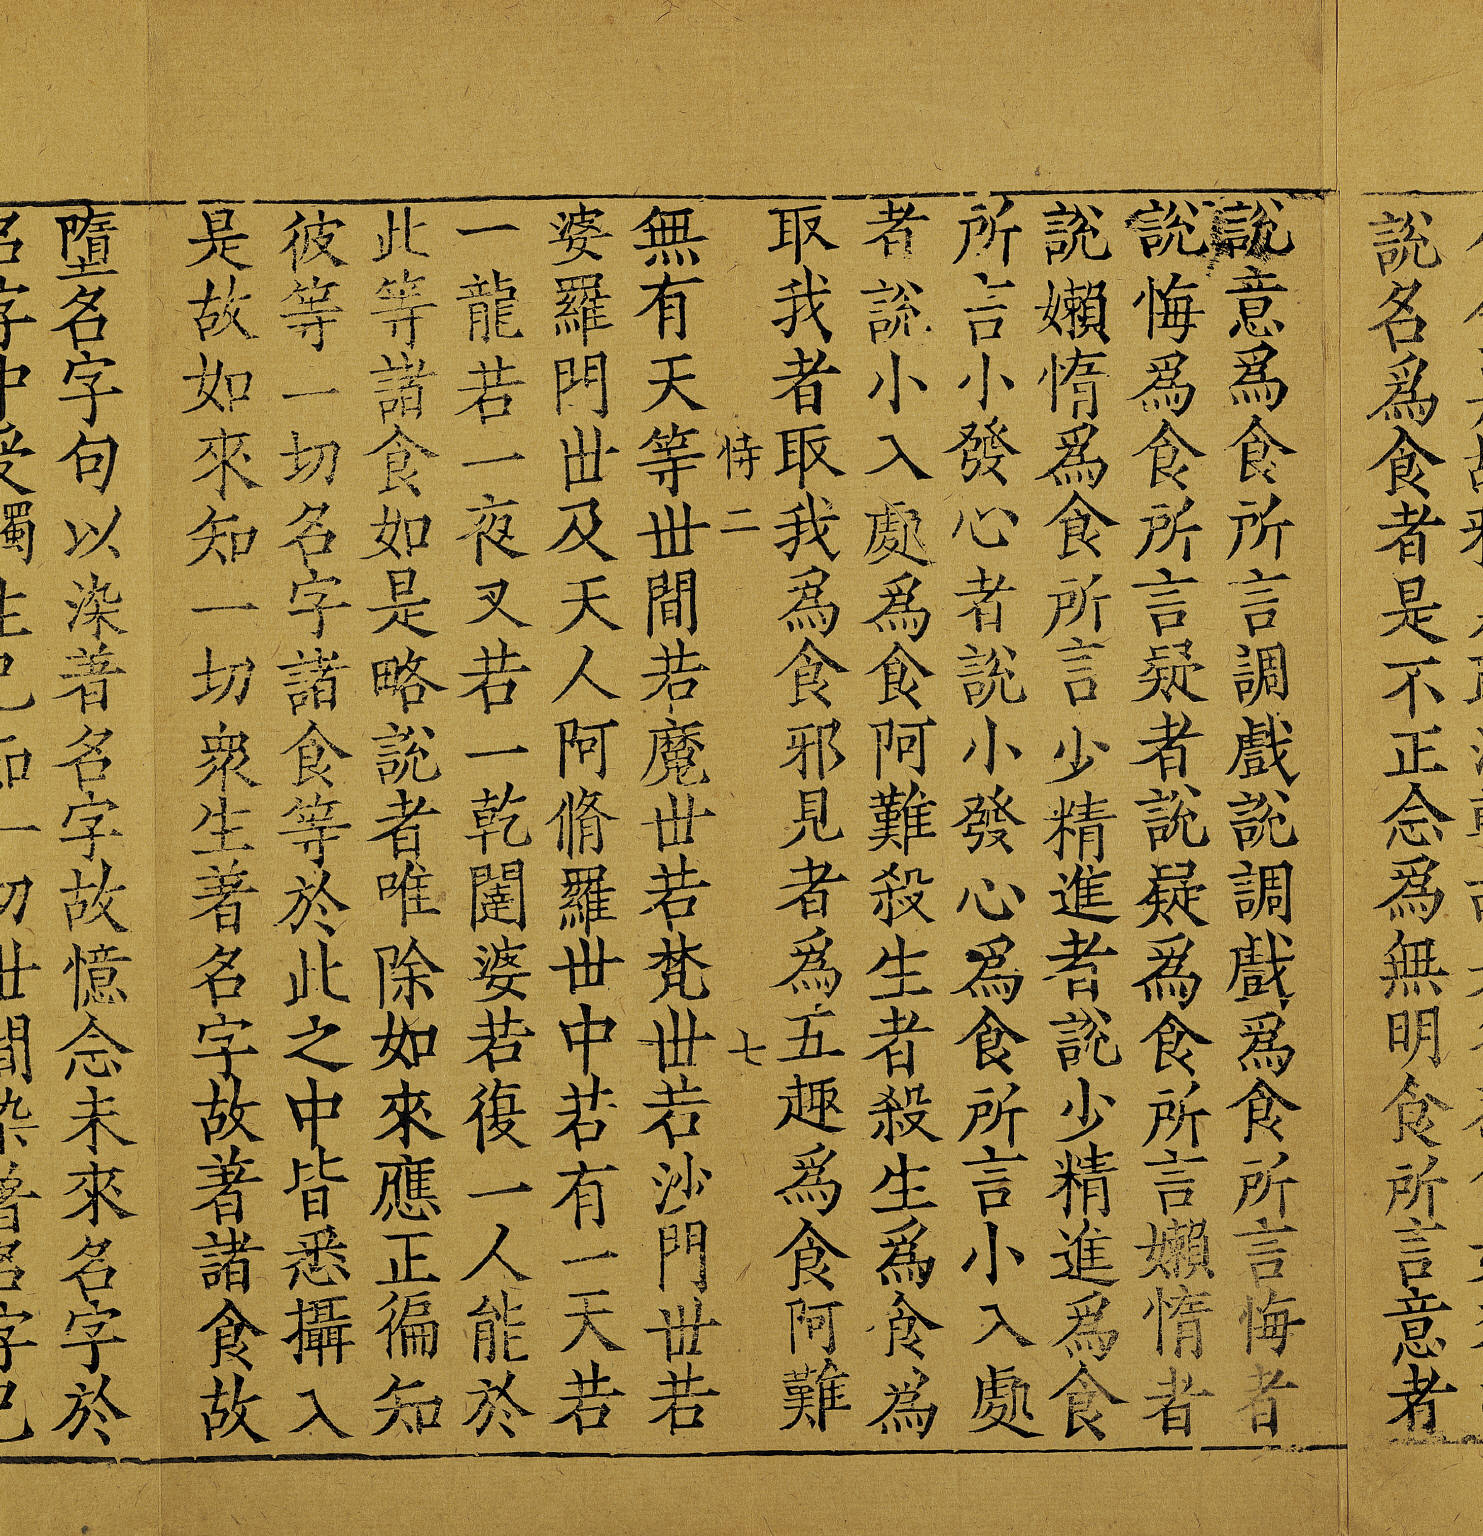 說名爲食者是不正念爲無明食所言意者
說意爲食所言調戲說調戲爲食所言悔者
說悔爲食所言疑者說疑爲食所言嬾惰者
說嬾惰爲食所言少精進者說少精進爲食
所言小發心者說小發心爲食所言小入處
者說小入處爲食阿難殺生者殺生爲食為
取我者取我爲食邪見者爲五趣爲食阿難
恃二 七
無有天等世間若魔世若梵世若沙門世若
婆羅門世及天人阿脩羅世中若有一天若
一龍若一夜叉若一乾闥婆若復一人能於
此等諸食如是略說者唯除如來應正徧知
彼等一切名字諸食等於此之中皆悉攝入
是故如來知一切衆生著名字故著諸食故
墮名字句以染著名字故憶念未來名字於